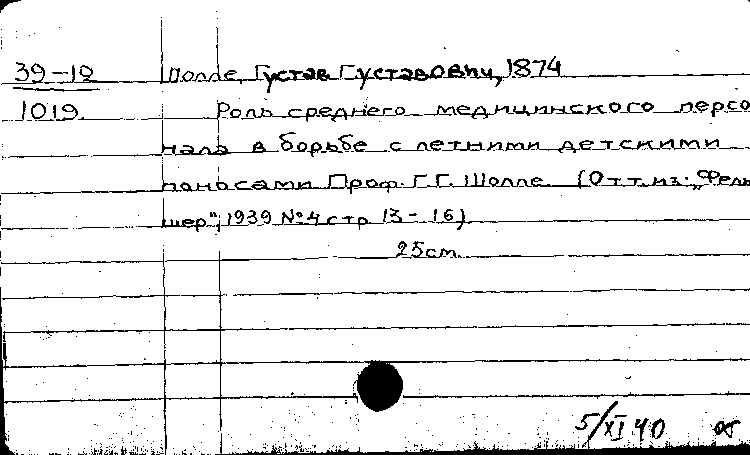 39-12 Шолле, Густав Густавович, 1874
1019 Роль среднего медицинского персо
нала в борьбе с летними детскими
поносами Проф. Г.Г. Шолле. (Отт. из: „Фельд
шер", 1939 № 4 стр 13-16)
25 см.
5/XI 40